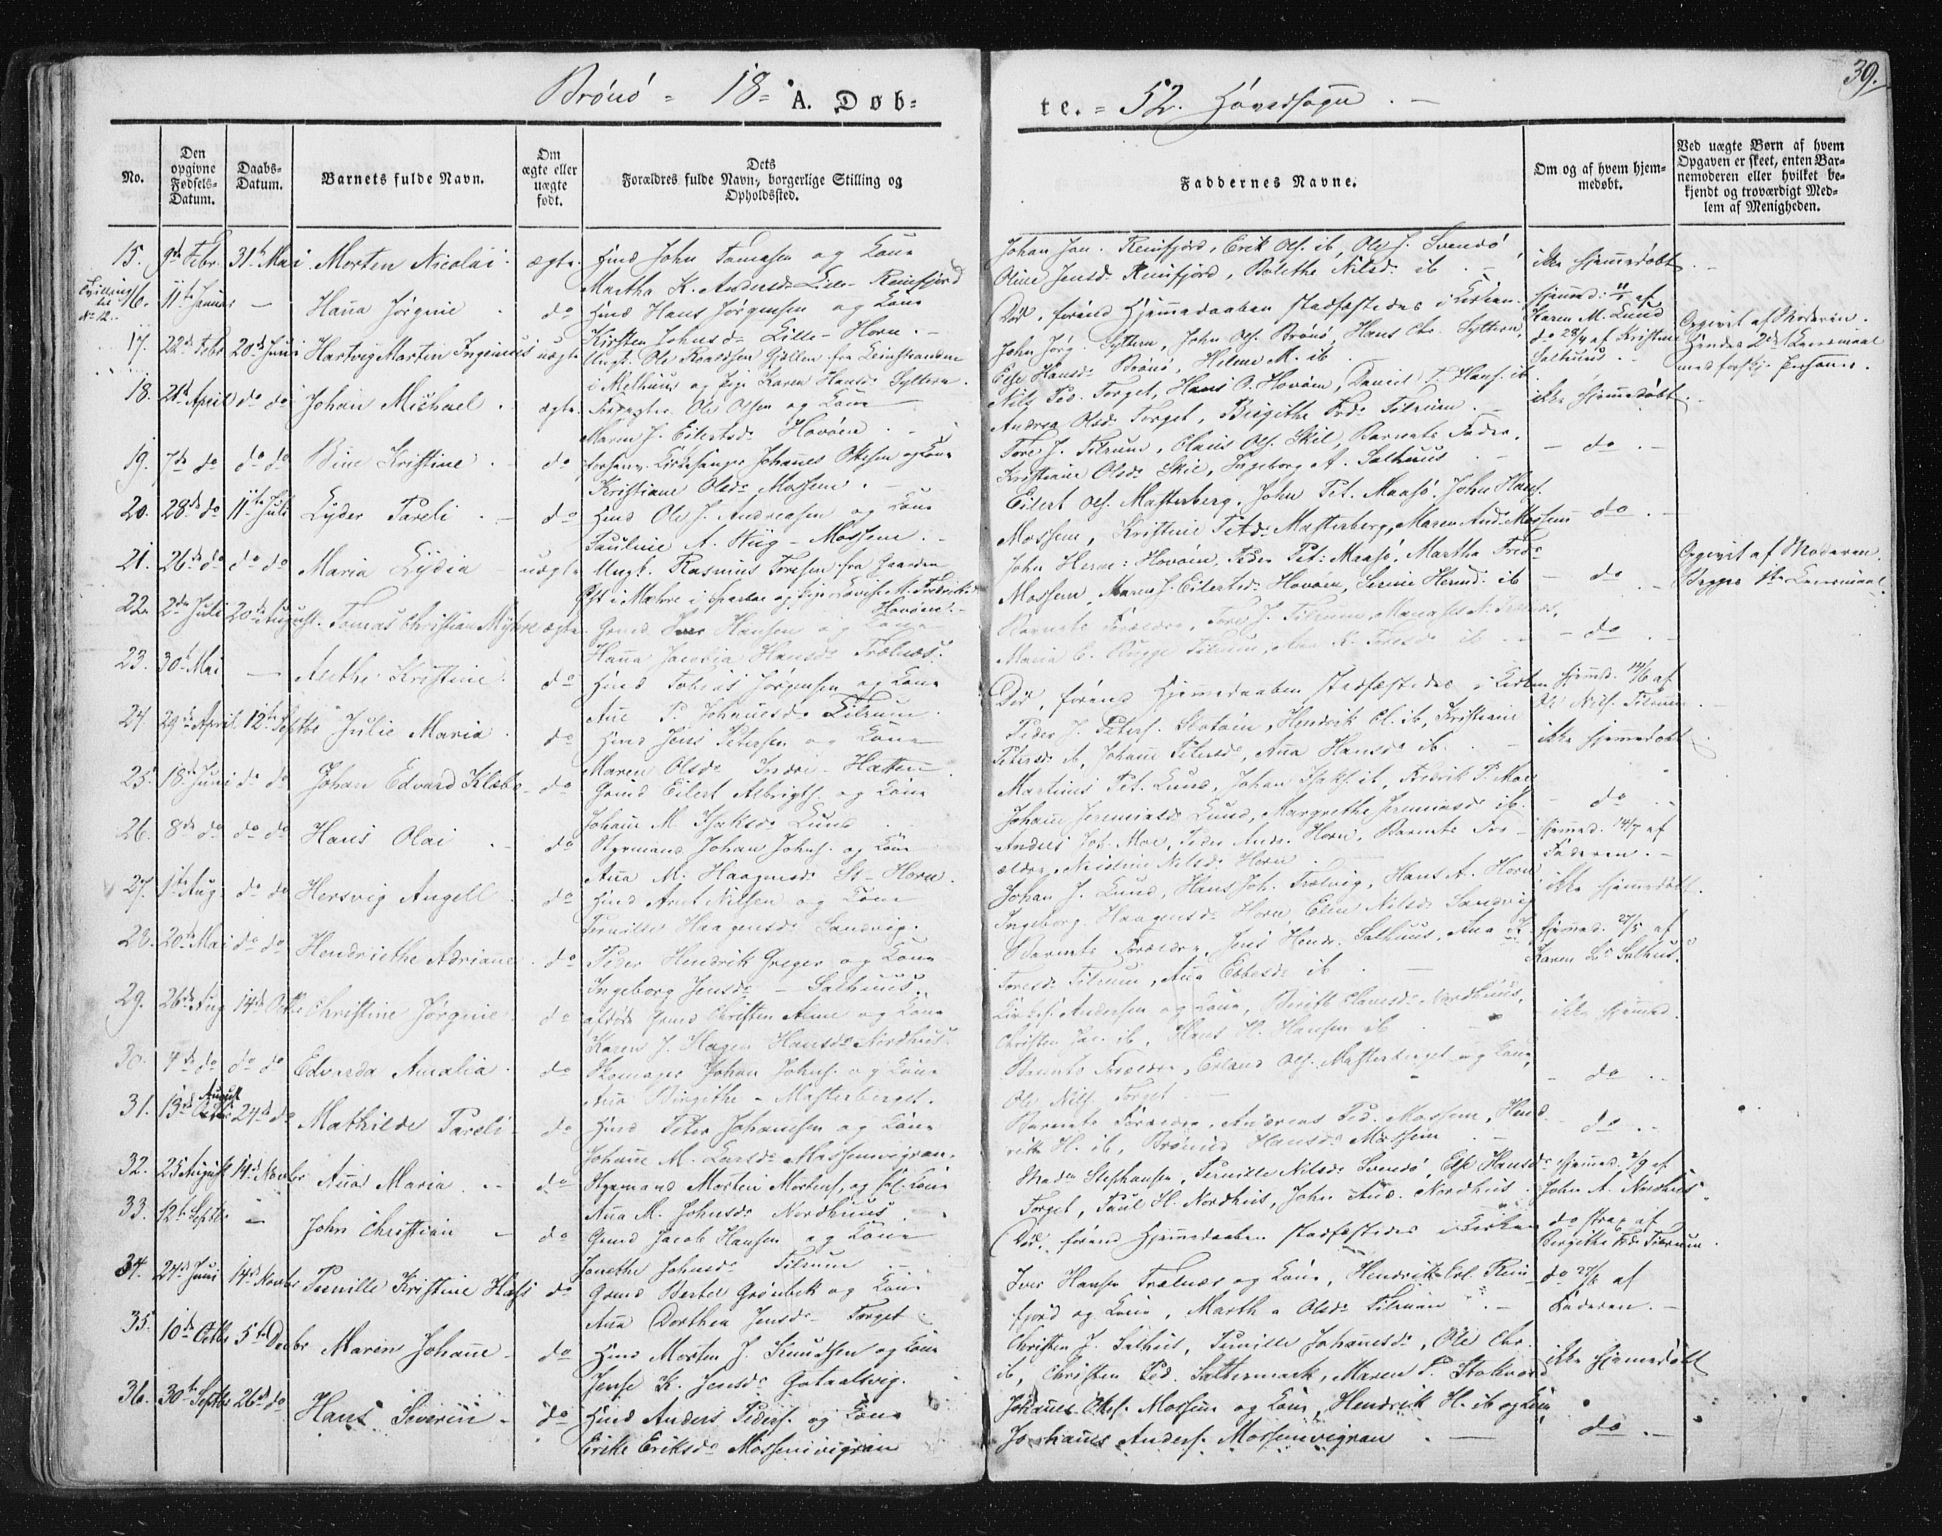 39.
Brönö = 18= A. Døb=
te. = 52. Hovedsogn. -
No.
Den opgivne Fødsels-Datum.
Daabs-Datum.
Barnets fulde Navn.
Om ægte eller uægte født.
Dets Forældres fulde Navn, borgerlige Stilling og Opholdssted.
Faddernes Navne.
Om og af hvem hjem-medøbt.
Ved uægte Børn af hvem Opgaven er skeet, enten Bar-nemoderen eller hvilket be-kjendt og troværdigt Med-lem af Menigheden.
15. 9de Febr. 31te Mai Morten Nicolai. ægte. Huusmd John Tomasen og Kone
Martha K. Andersd. Lille-Reinfjord
Johan Jon. Reinfjord, Erik Ols. ib, Ole J. Svendö
Oline Jensd. Reinfjord, Bolethe Nilsd. ib - ikke hjemmedøbt.
Tvilling til No 12. 16. 11te Januar - Hana Jörgine do Huusmd Hans Jörgensen og Kone
Kirsten Johnsd. Lille-Horn. -
Död, forend Hjemmedaaben stadfæstedes i Kirken. hjemmed: af Karen M. Lund
17. 22de Febr 20de Juni Hartvig Martin Ingenius uægte Ungk. Ole Roaldsen Gjellen fra Leinstranden
i Melhuus og Pige Karen Hansd. Sylteren.
John Jörg. Sylteren, John Ols. Brönö, Hans Chr. Sylteren,
Else Hansd. Brönö, Helene M. ib do 28/4 af Kristine Salhuus. Opgivet af Moderen. Hendes 2det Leiermaal med forskj. Personer.
18. 21de April do do Johan Michael. ægte. Forpagter Ole Olsen og Kone
Maren J. Eilertsd. Havöen.
Nils Ped. Torget, Hans O. Havöen, Daniel J. Hans. ib
Andrea Olsd. Torget, Birgithe Pedsd. Tilrum. - ikke hjemmedøbt.
19. 7de do do do Bine Kristine. do forhenv. Kirkesanger Johannes Ottesen og Kone
Kristiane Olsd. Mossem. -
Tore J. Tilrum, Claus Ols. Skil, Barnets Fader,
Kristiane Olsd. Skil, Ingeborg A. Salhuus - do -
20. 28de do 11te Juli Lyder Pareli. do Huusmd Ole J. Andreasen og Kone
Pauline A. Wiig - Mossem. -
Eilert Ols. Masterberg, John Pet. Maasö, John Hans.
Mossem, Kristine Petd. Masterberg, Maren And. Mossem do
21. 26de do do do Maria Lydia uægte Ungk. Rasmus Toresen fra Gaarden
i Mæhre i Sparbu og Pige M. Fredriksd. Havöen. -
John Herm: Havöen, Peder Pet: Maasö, Martha Fredsd.
Mossem, Maren J. Eilertsd. Havöen, Serine Hermd. ib - do - Opgivet af Moderen. Begges 1ste Leiermaal.
22. 2den Juli 20de August. Tomas Christian Myhre ægte. Grmd. Iver Hansen og Kone
Hana Jacobia Hansd. Trælnæs.
Barnets Forældre, Tore J. Tilrum, Manases A. Trælnæs,
Maria C. Bugge Tilrum, Ane K. Toresd. ib - do -
23. 30te Mai - Anthe Kristine. do Huusmd Tobias Jörgensen og Kone
Ane P. Johannesd. Tilrum.
Död, forend Hjemmedaaben stadfæstedes i Kirken hjemmed. 14/6 af Ol. Nils. Tilrum
24 29de April 12te Septbr Julie Maria. do Huusmd Jens Petersen og Kone
Maren Olsd. Indre-Hatten.
Peder J. Peters. Slotöien, Hendrik Ol. ib, Kristiane
Petersd. ib, Johane Petersd., Ana Hansd. ib. - ikke hjemmedøbt
25. 18de Juni do do Johan Edvard Klæbo- do Grmd Eilert Albrigts. og Kone
Johane M. Isaksd. Lund.
Martines Pet. Lund, Johan Isaks. ib, Fredrik P. Moe
Johane Jeremiasd. Lund, Margrethe Jeremiasd. ib - do -
26. 8de do do do Hans Olai - do Styrmand Johan Johns. og Kone
Ana M. Haagensd. St-Horn.
Anders Joh. Moe, Peder And. Horn, Barnets For-
ældre, Nicoline Nilsd. Horn. hjemmed. 14/7 af Faderen. -
27. 1te Aug do do Hersvig Angell. do Huusmd Arnt Nilsen og Kone
Pernille Haagensd. Sandvig.
Johan J. Lund, Hans Joh. Trælvig, Hans A. Horn,
Ingeborg Haagensd. Horn, Elen Nilsd. Sandvig ikke hjemmedøbt.
28. 20de Mai do do Hendriethe Adriane. do Peder Hendrik Greger og Kone
Ingeborg Jensd. - Salhuus.
Barnets Forældre, Jens Hendr. Salhuus, Ana
Toresd. Tilrum, Ana Ebbesd. ib - hjemmed. 27/5 af Karen Salhus.
29. 26de Aug 14de Octbr Christine Jörgine. do afdöde Grmd Christen Arne og Kone
Karen J. Hagen Hansd. Nordhuus.
Andersen og Kone, Berith Clausd. Nordhuus,
Christen Jac. ib, Hans H. Hansen ib ikke hjemmed.
30. 4de do do do Edvarda Amalia. do Skomager Johan Johns. og Kone
Ana Birgithe - Masterberget.
Barnets Forældre, Erland Ols. Masterberget og Kone,
Ole Nils. Torget - do -
31. 13de August 24de do Mathilde Pareli- do Huusmd Peter Johansen og Kone
Johane M. Larsd. Mossemvigran.
Barnets Forældre, Andreas Ped. Mossem, Hend-
rik H. ib, Brönild Hansd. Mossem - do -
32. 25 August 14de Novbr Ana Maria. - do Styrmand Morten Mortens. og Kone
Ana M. Johnsd. Nordhuus.
Madm Stephansen, Pernille Nilsd. Svendö, Else Hansd.
Torget, Paul H. Nordhus, John And. Nordhus. hjemmed. 2/9 af John A. Nordhus.
33. 12te Septbr - John Christian - do Grmd Jacob Hansen og Kone
Jonethe Johnsd. Tilrum -
Död, forend Hjemmedaaben stadfæstedes i Kirken do strax af Birgithe Pedsd. Tilrum.
34. 24de Juni 14de Novbr Pernille Kristine Hass do Grmd Bertel Grönbek og Kone
Ana Dorthea Jensd. Torget.
Iver Hansen Trælnæs og Kone, Hendrik Erl. Rein-
fjord og Kone, Martha Olsd. Tilrum - do af Faderen. -
35. 10de Octbr 5te Decbr Maren Johane - do Huusmd Morten J. Knudsen og Kone
Jense K. Jensd. Gataalvig.
Christen J. Salhus, Pernille Johannesd., Ole Chr.
ib, Christen Ped. Saltermark, Maren P. Stokvord ikke hjemmedøbt
36. 30te Septbr 26de do Hans Severin - do Huusmd Anders Peders. og Kone
Erike Eriksd. Mossemvigran
Johannes Ottes. Mossem og Kone, Hendrik H. ib og Kone
Johannes Anders. Mossemvigran. - do -